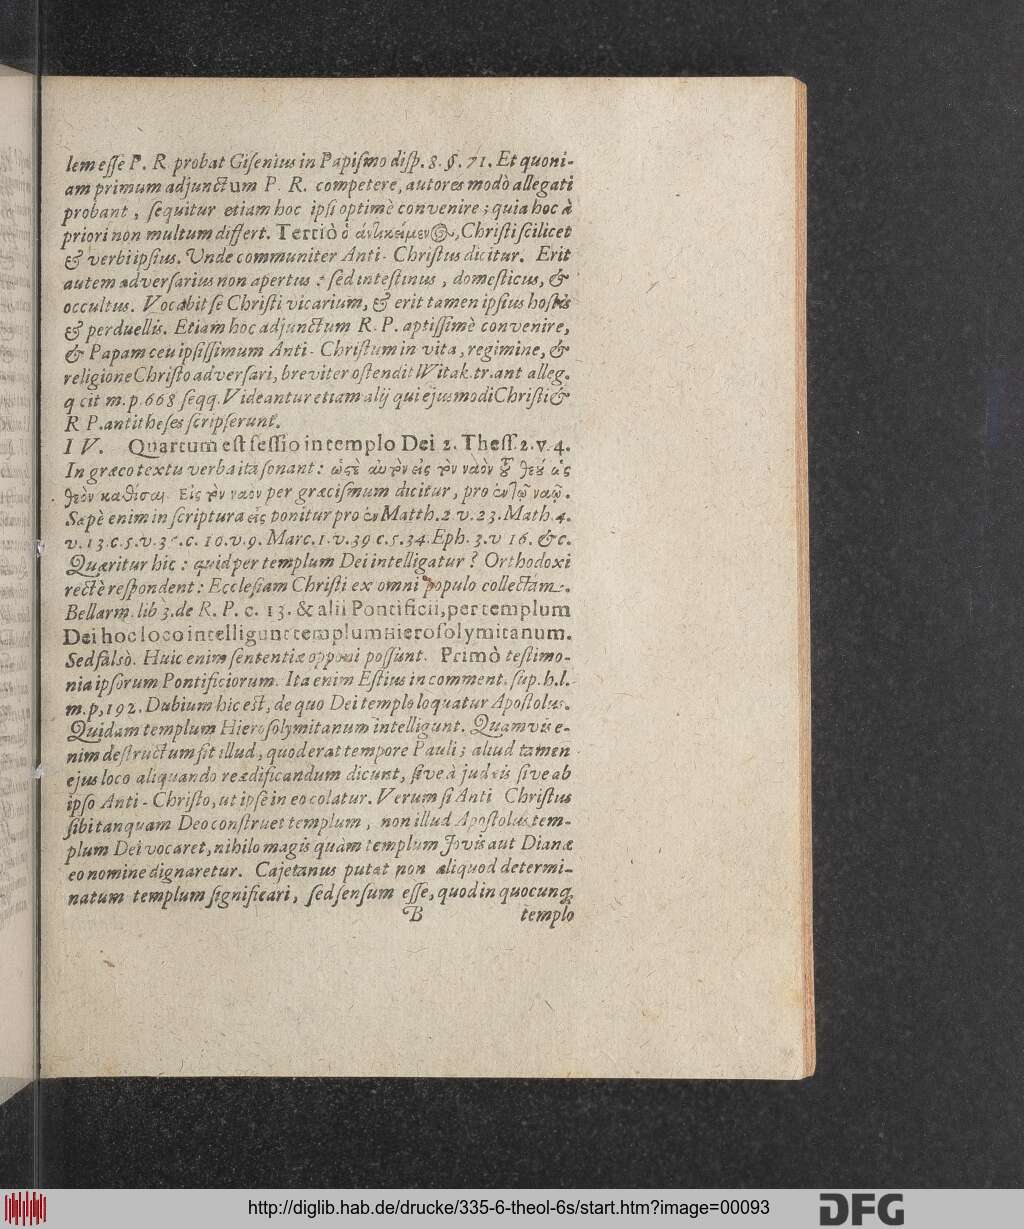 lem esſe P. R probat Giſenius in Papiſmo diſp. 8. §. 71. Et quoni-
am primum adjunctum P. R. competere, autores modò allegati
probant, ſequitur etiam hoc ipſi optimè convenire; quia hoc à
priori non multum differt. Tertiò ὁ ἀντικείμενος, Chriſti ſcilicet
& verbi ipſius. Unde communiter Anti-Chriſtus dicitur. Erit
autem adverſarius non apertus: ſed inteſtinus, domeſticus, &
occultus. Vocabit ſe Chriſti vicarium, & erit tamen ipſius hoſtis
& perduellis. Etiam hoc adjunctum R. P. aptiſſimè convenire,
& Papam ceu ipſiſſimum Anti-Chriſtum in vita, regimine, &
religione Chriſto adverſari, breviter oſtendit Witak. tr. ant alleg.
q cit m. p. 668 ſeqq. Videantur etiam alij qui ejusmodi Chriſti &
R P. antitheſes ſcripſerunt.
IV. Quartum eſt ſeſſio in templo Dei 2. Theſſ. 2. v. 4.
In græco textu verba ita ſonant: ὥςε αὐτὸν εἰς τὸν ναὸν τοῦ θεοῦ ὡς
θεὸν καθίσαι. Εἰς τὸν ναὸν per græciſmum dicitur, pro ἐν τῷ ναῷ.
Sæpè enim in ſcriptura εἰς ponitur pro ἐν Matth. 2. v. 23. Math. 4.
v. 13. c. 5. v. 35. c. 10. v. 9. Marc. 1. v. 39 c. 5. 34. Eph. 3. v 16. &c.
Quæritur hic: quid per templum Dei intelligatur? Orthodoxi
rectè reſpondent: Eccleſiam Chriſti ex omni populo collectam.
Bellarm. lib 3. de R. P. c. 13. & alii Pontificii, per templum
Dei hoc loco intelligunt templum Hieroſolymitanum.
Sed falsò. Huic enim ſententiæ opponi poſſunt. Primò teſtimo-
nia ipſorum Pontificiorum. Ita enim Eſtius in comment. ſup. h. l.
m. p, 192. Dubium hic eſt, de quo Dei templo loquatur Apoſtolus.
Quidam templum Hieroſolymitanum intelligunt. Quamvis e-
nim deſtructum ſit illud, quod erat tempore Pauli; aliud tamen
ejus loco aliquando reædificandum dicunt, ſive à judæis ſive ab
ipſo Anti-Chriſto, ut ipſe in eo colatur. Verum ſi Anti Chriſtus
ſibi tanquam Deo conſtruet templum, non illud Apoſtolus tem-
plum Dei vocaret, nihilo magis quàm templum Jovis aut Dianæ
eo nomine dignaretur. Cajetanus putat non aliquod determi-
natum templum ſignificari, ſed ſenſum eſſe, quod in quocunq;
B templo
http://diglib.hab.de/drucke/335-6-theol-6s/start.htm?image=00093
DFG